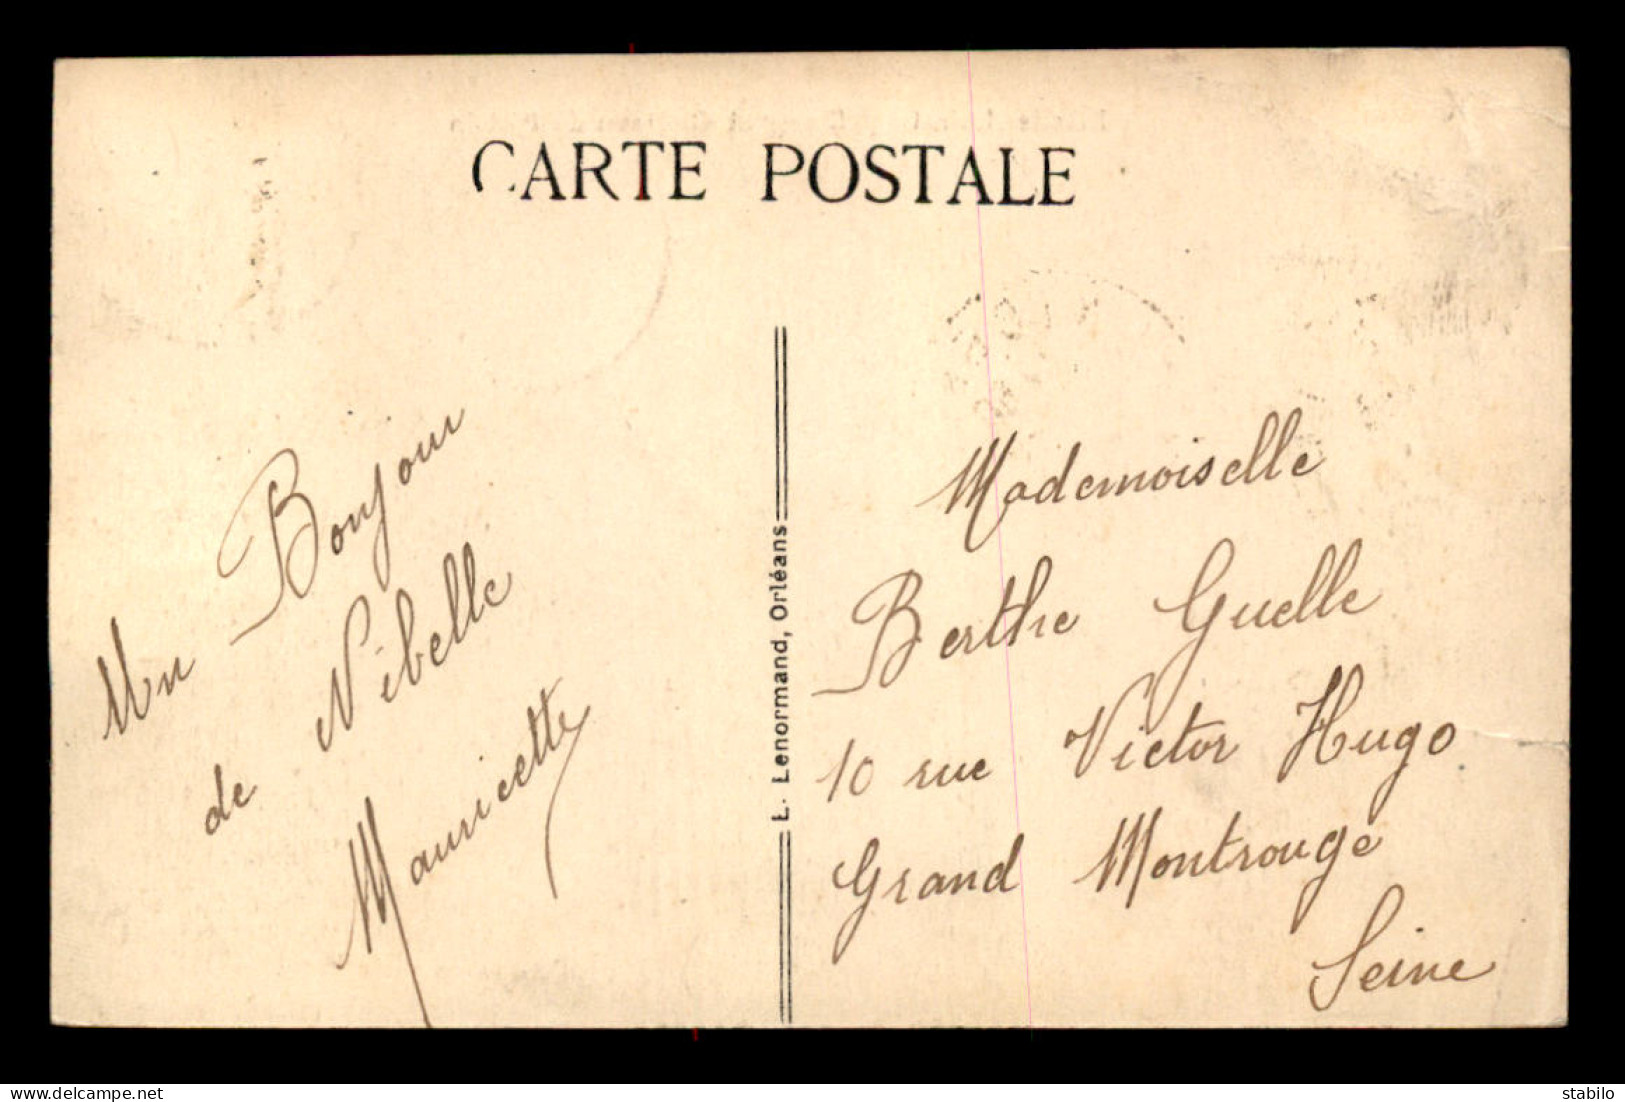 CARTE POSTALE
Un Bonjour
de Nibelle
Mauricette
L. Lenormand, Orléans
Mademoiselle
Berthe Guelle
10 rue Victor Hugo
Grand Montrouge
Seine
delcampe.net
stabilo